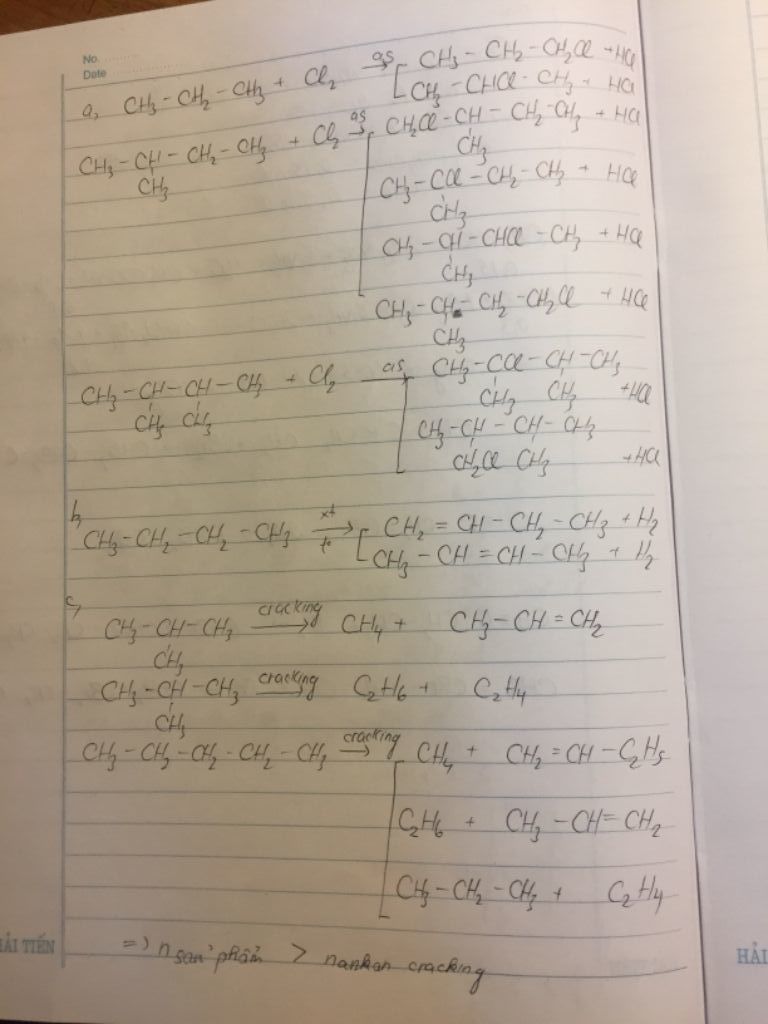 No.
Date
a, CH3 - CH2 - CH3 + Cl2 as→ [ CH3 - CH2 - CH2Cl + HCl
CH3 - CHCl - CH3 + HCl
CH3 - CH - CH2 - CH3 + Cl2 as→ [ CH2Cl - CH - CH2 - CH3 + HCl
CH3 CH3
CH3 - CCl - CH2 - CH3 + HCl
CH3
CH3 - CH - CHCl - CH3 + HCl
CH3
CH3 - CH - CH2 - CH2Cl + HCl
CH3
CH3 - CH - CH - CH3 + Cl2 as→ [ CH3 - CCl - CH - CH3
CH3 CH3 CH3 CH3 + HCl
CH3 - CH - CH - CH3
CH2Cl CH3 + HCl
b, CH3 - CH2 - CH2 - CH3 xt→ to [ CH2 = CH - CH2 - CH3 + H2
CH3 - CH = CH - CH3 + H2
c, CH3 - CH - CH3 cracking→ CH4 + CH3 - CH = CH2
CH3
CH3 - CH - CH3 cracking→ C2H6 + C2H4
CH3
CH3 - CH2 - CH2 - CH2 - CH3 cracking→ [ CH4 + CH2 = CH - C2H5
C2H6 + CH3 - CH = CH2
CH3 - CH2 - CH3 + C2H4
=> n sản phẩm > nankan cracking
HẢI TIẾN
HẢI